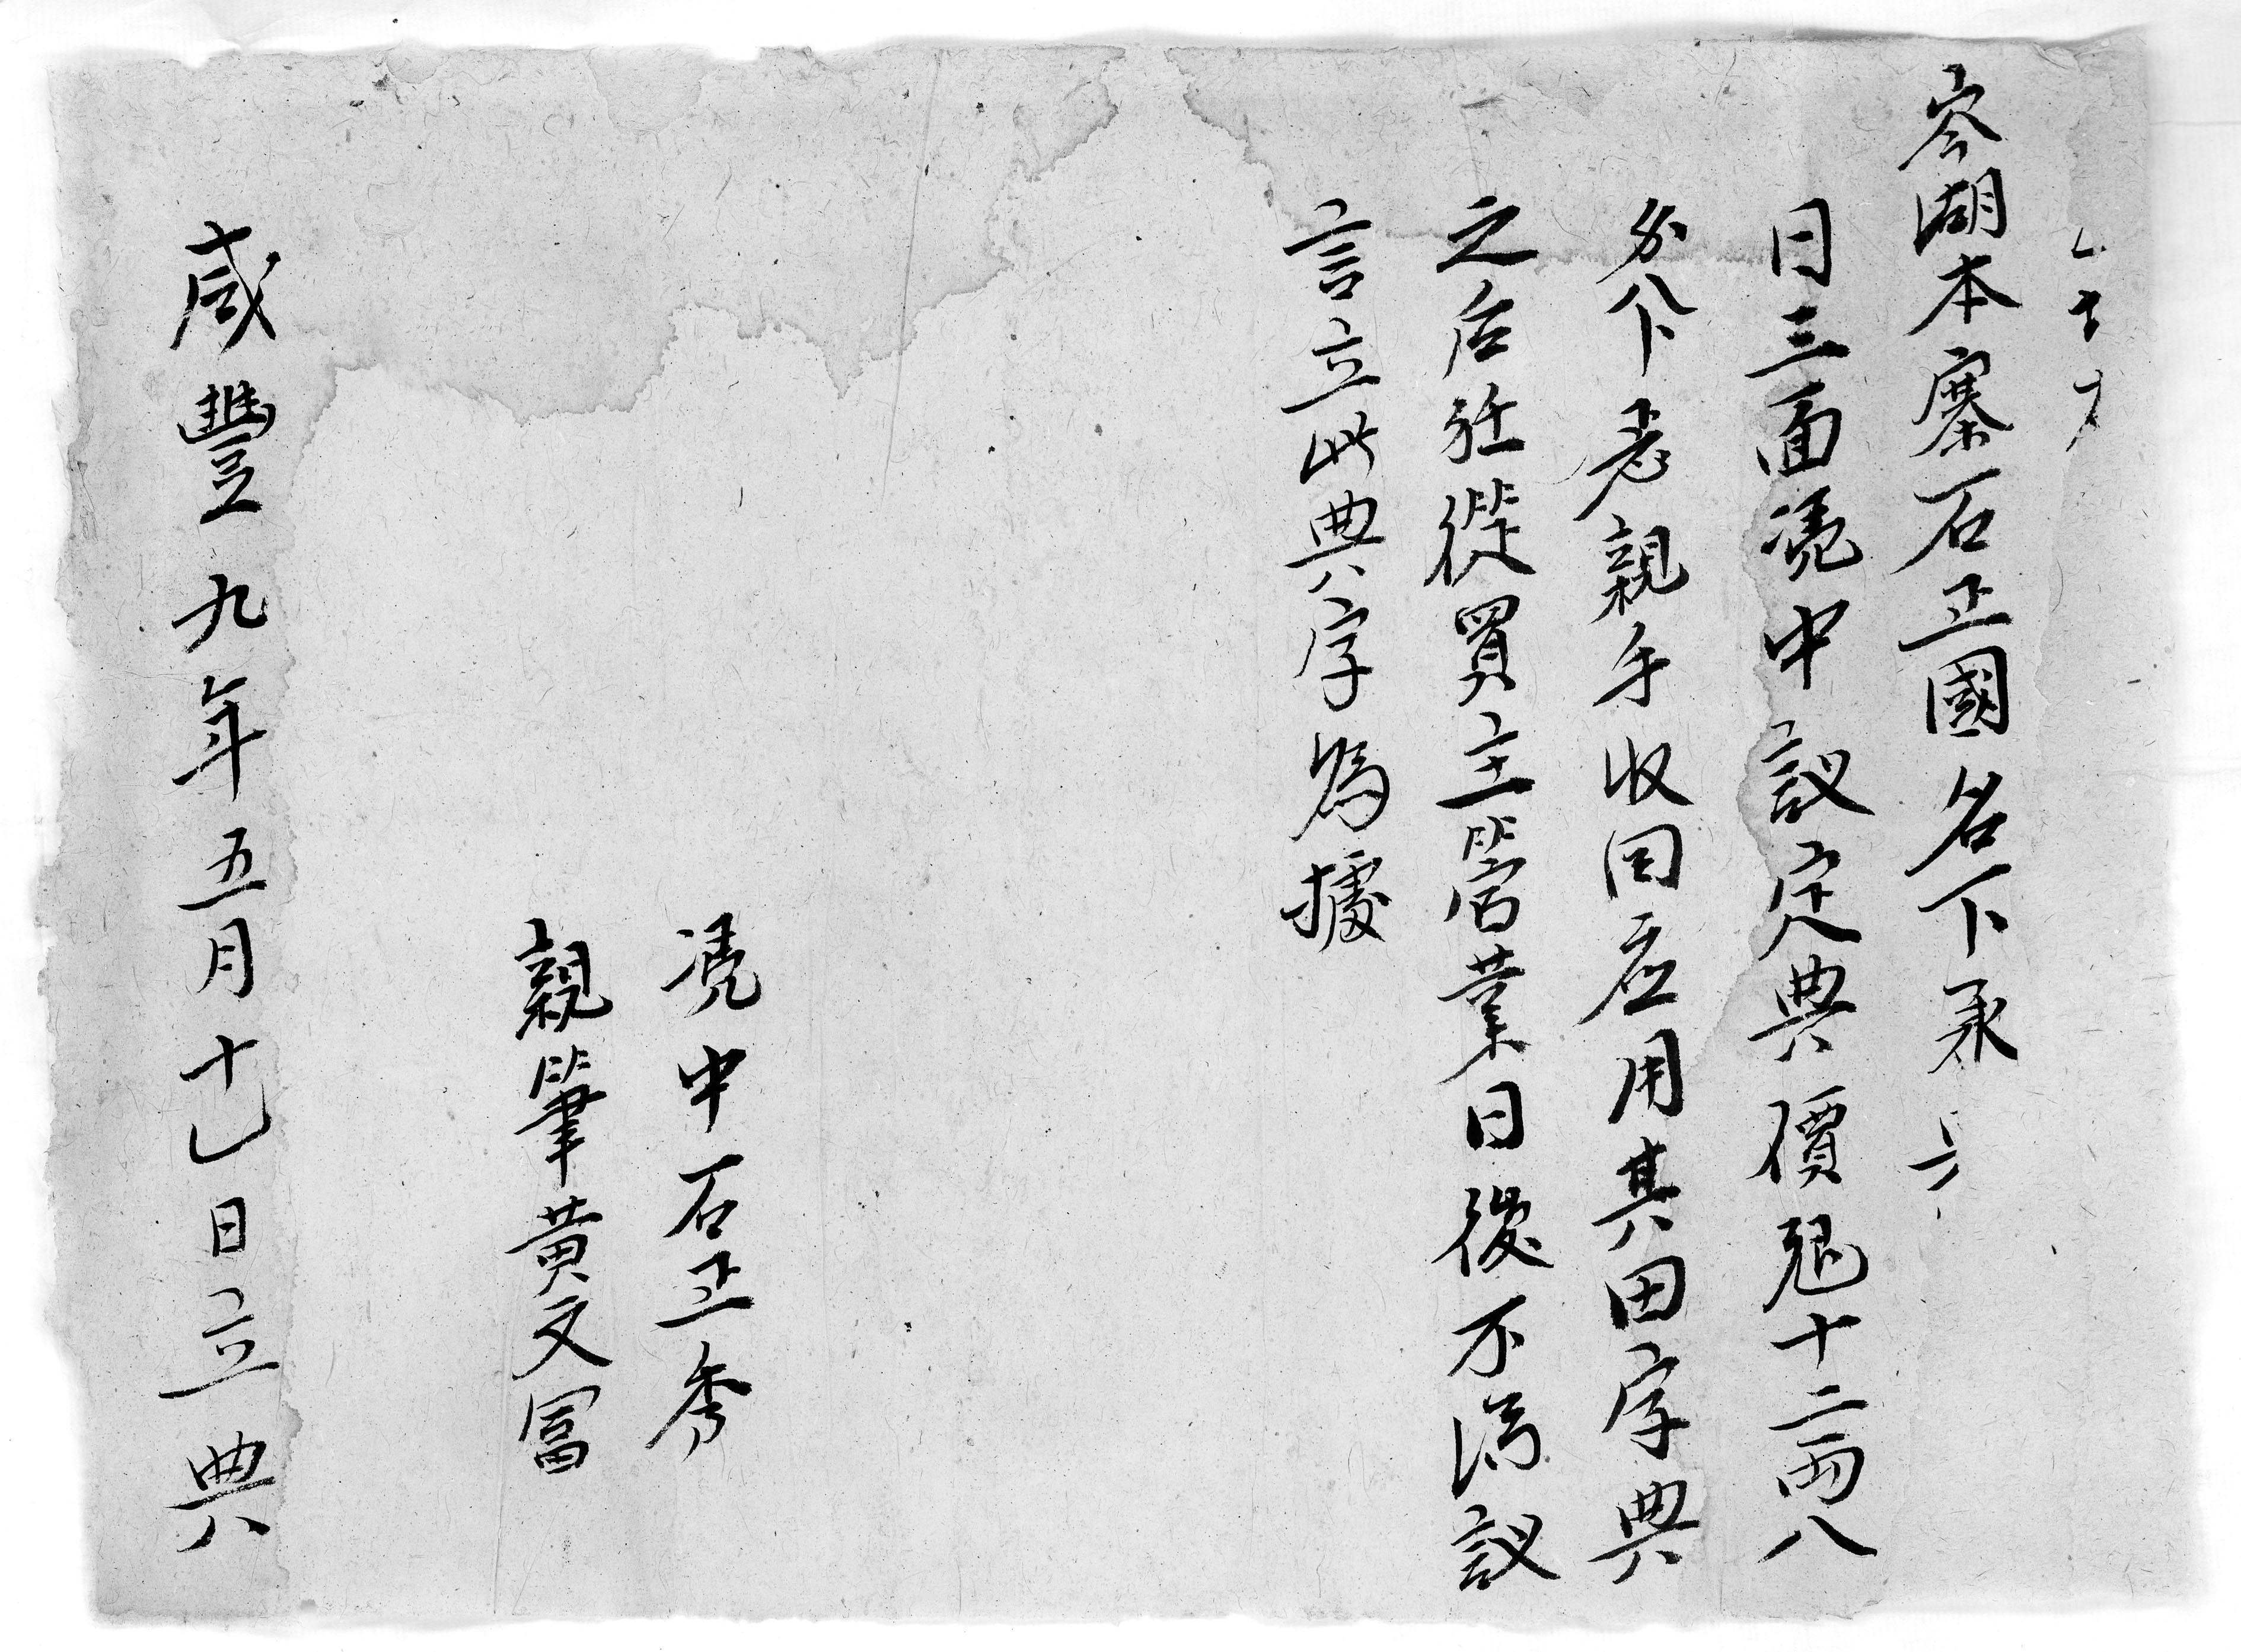 岑湖本寨石正國名下承
日三面凴中議定典價艮十二両八
分八下老親手收回应用其田字典
之后任從買主管業日後不淂議
言立此典字為據
凴中石正秀
親筆黃文冨
咸豐九年五月十七日立典